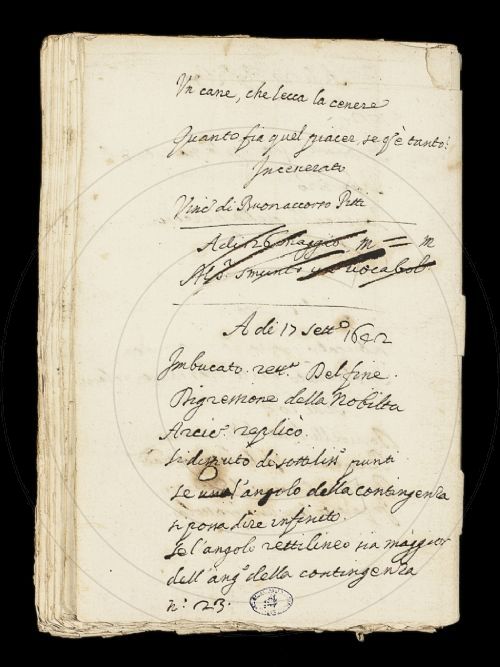 Un cane, che lecca la cenere
Quanto fia quel piacer, se q.è tanto.
Incenerato
Vinc.o di Buonaccorso Pitti
A di 26 maggio
smunto un vocabol.
A di 17 Sett.o 1642
Imbucato. Delfine.
della Nobiltà
Arcic.o replicò.
Si disputò di punti
se l'angolo della contingenza
si possa dire infinito.
Se l'angolo rettilineo sia maggior
dell'ang.o della contingenza
n.o 23.